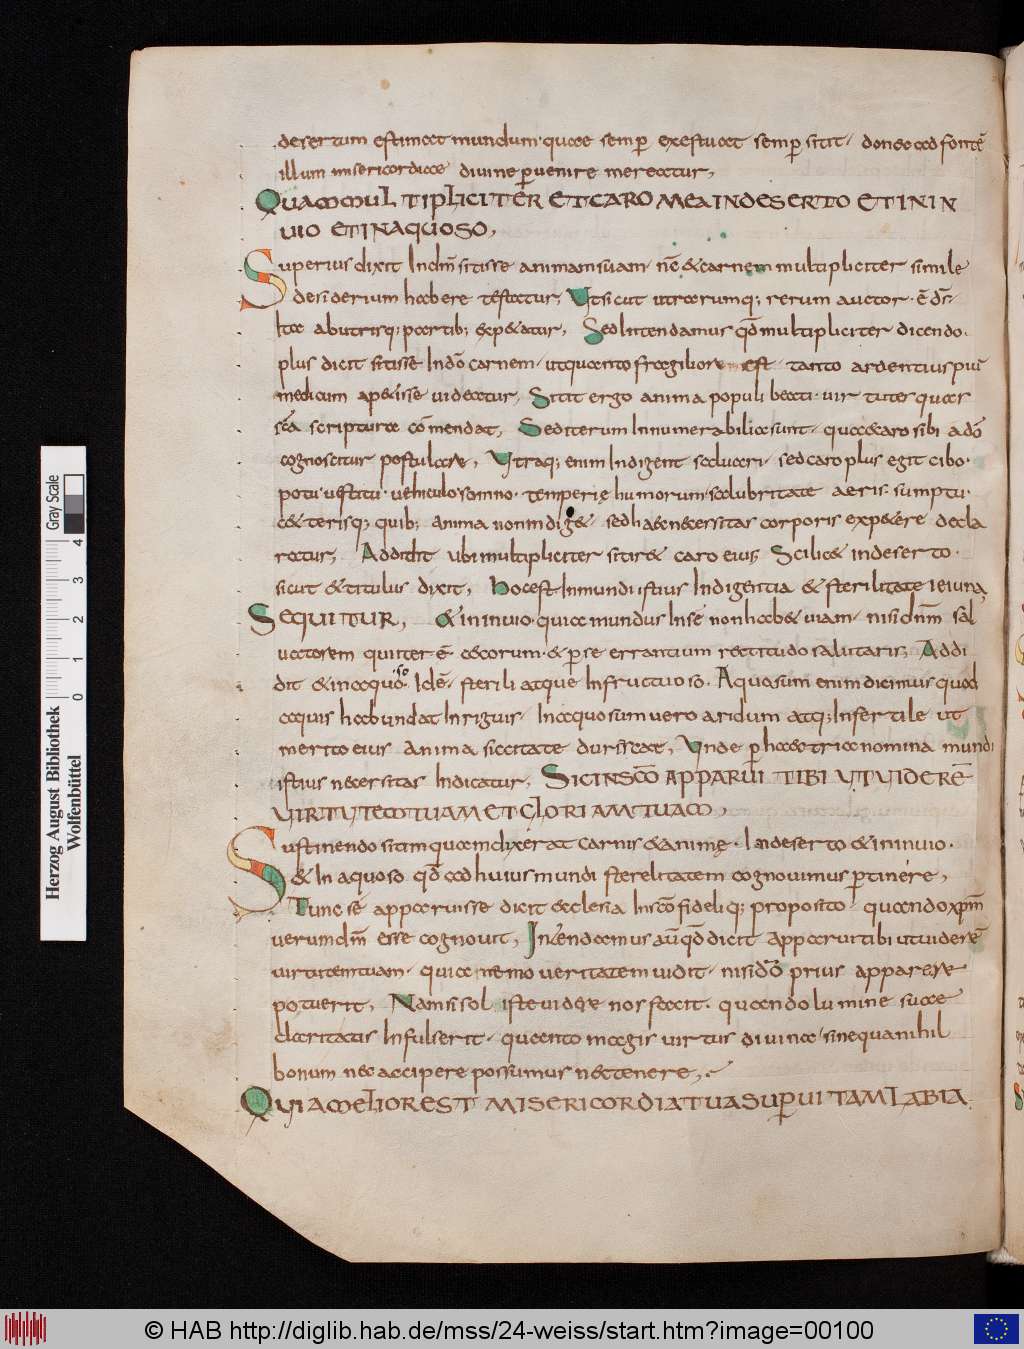 desertum estimat mundum· quae semp exestuat semp sitit· donec ad fontē
illum misericordiae divine pvenire mereatur,
QUAM MULTIPLICITER ET CARO MEA IN DESERTO ET IN IN
UIO ET IN AQUOSO,
Superius dixit In dnm sitisse animam suam· nc̄ & carnem multipliciter simile
desiderium habere testatur; Ut sicut utrarumq; rerum auctor· ē ds̄·
ita ab utrisq; partib; exp&atur, Sed intendamus qd multipliciter dicendo·
plus dicit sitisse In dō carnem· ut quanto fragilior est· tanto ardentius piū
medicum ap&isse uideatur, Sitit ergo anima populi beati· uir
sc̄a scripturae cōmendat, Sed iterum Innumerabilia sunt· quae & caro sibi a dō
cognoscitur postulare, Utraq; enim Indigent saluari· sed caro plus eget cibo·
potu· uestitu· uehiculo· somno· temperie humorum· salubritate aeris· sumptu·
c&erisq; quib; anima non indig&· sed habe necessitas corporis exp&ere decla
ratur, Addidit ubi multipliciter sitir& caro eius; Scilic& in deserto·
sicut & titulus dixit, Hoc est In mundi istius Indigentia & sterilitate ieiuna,
SEQUITUR, & in inuio· quia mundus In se non hab& uiam· nisi dnm sal
uatorem qui iter ē caecorum· & p se errantium rectitudo salutaris; Addi
dit & in aquoso· Id ē· sterili atque Infructuoso· Aquosum enim dicimus quod
aquis habundat Inriguis· Inaquosum vero aridum atq; Infertile ut
merito eius anima siccitate durescat, Unde p haec tria nomina mundi
istius necessitas Indicatur, SIC IN SCŌ APPARUI TIBI UT VIDERĒ
VIRTUTEM TUAM ET GLORIAM TUAM,
Sustinendo sitim quam dixerat carnis & anime· In deserto & in inuio·
& In aquoso qd ad huius mundi sterelitatem cognouimus ptinere,
Tunc se apparuisse dicit ecclesia In scō fideliq; proposito· quando xpm
uerum dm esse cognouit, Intendamus aut qd dicit apparui tibi ut uiderē
uirtutem tuam· quia nemo ueritatem uidit· nisi dō prius apparere
potuerit, Nam si sol iste uidere nos facit· quando lumine suae
claritatis Infulserit· quanto magis uirtus diuinae· sine qua nihil
bonum nec accipere possumus nec tenere,
QUIA MELIOR EST MISERICORDIA TUA SUP UITAM LABIA
Gray Scale
4
3
2
1
0
Herzog August Bibliothek
Wolfenbüttel
© HAB http://diglib.hab.de/mss/24-weiss/start.htm?image=00100